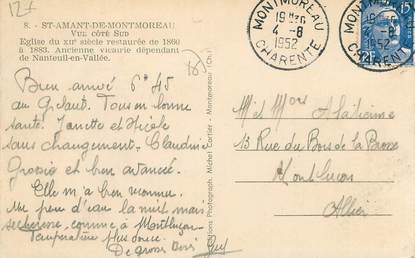 8. - ST-AMANT-DE-MONTMOREAU
VUE CÔTÉ SUD
Eglise du XIIe siècle restaurée de 1860
à 1883. Ancienne vicairie dépendant
de Nanteuil-en-Vallée.
MONTMOREAU
19 H
4 - 8
1952
CHARENTE
MONTMOREAU
19 H
4 - 8
1952
CHARENTE
15F
Bien arrivé 6h45
au Tous en bonne
santé. Janette et Nicole
sans changement. Claudine
Grossie et bien avancée.
Elle m'a bien reconnu.
Un peu d'eau la nuit mais
sécheresse, comme à Montluçon
température plus douce.
De gros Bises
Editions Photograph. Michel Cartier - Montmoreau
Mr et Mme
13 Rue du Bois de la Brosse
Montluçon
Allier